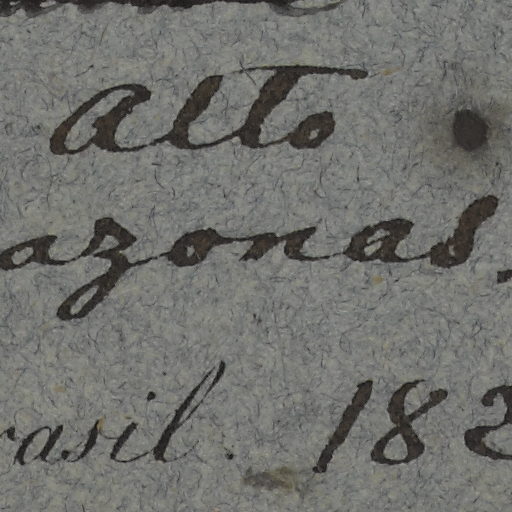 Alto
azonas,
rasil. 182